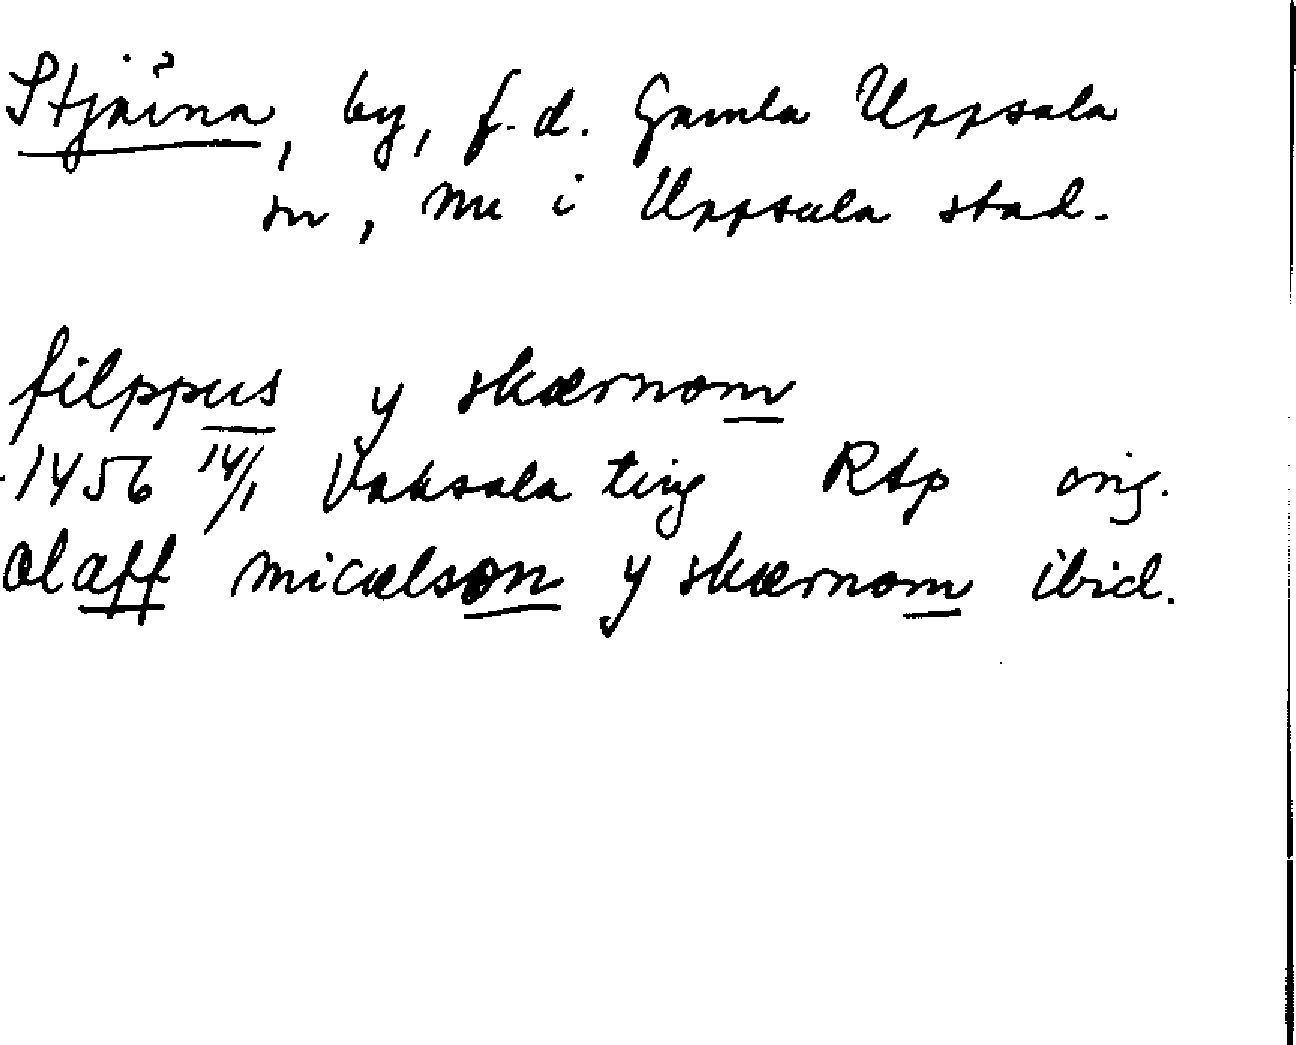 Stjärna, by, f.d. Gamla Uppsala
sn, nu i Uppsala stad.
filppus y skærnom
1456 14/1 Vaksala ting RAp orig.
olaff micælson y skærnom ibid.